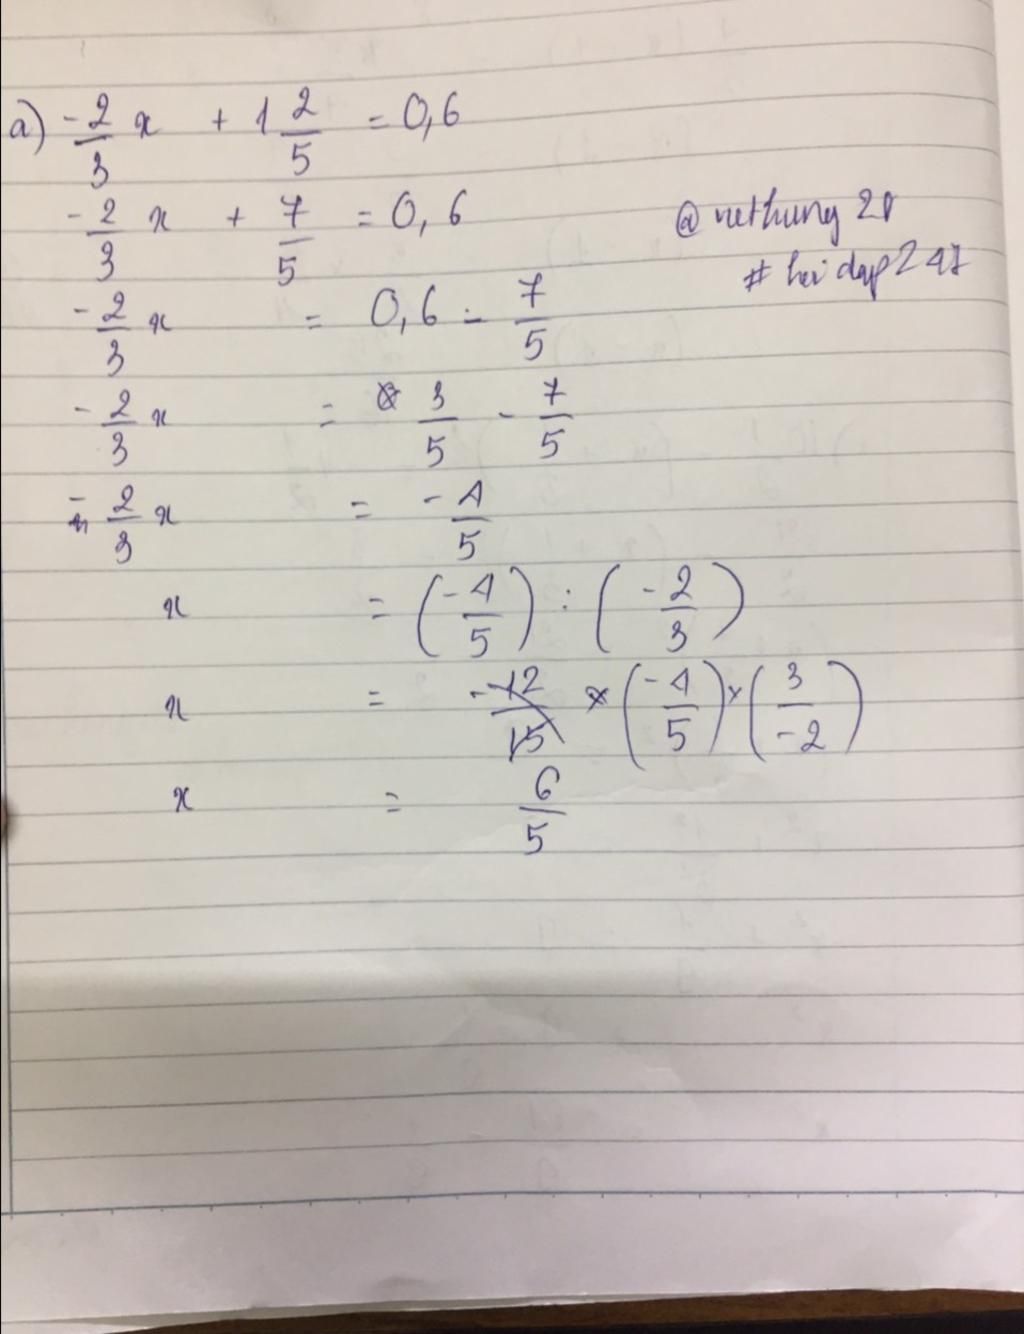 a) -2/3 x + 1 2/5 = 0,6
-2/3 x + 7/5 = 0,6
@ viethung 21
# hoi dap 247
-2/3 x = 0,6 - 7/5
-2/3 x = 3/5 - 7/5
-2/3 x = -4/5
x = (-4/5) : (-2/3)
x = (-4/5) x (3/-2)
x = 6/5